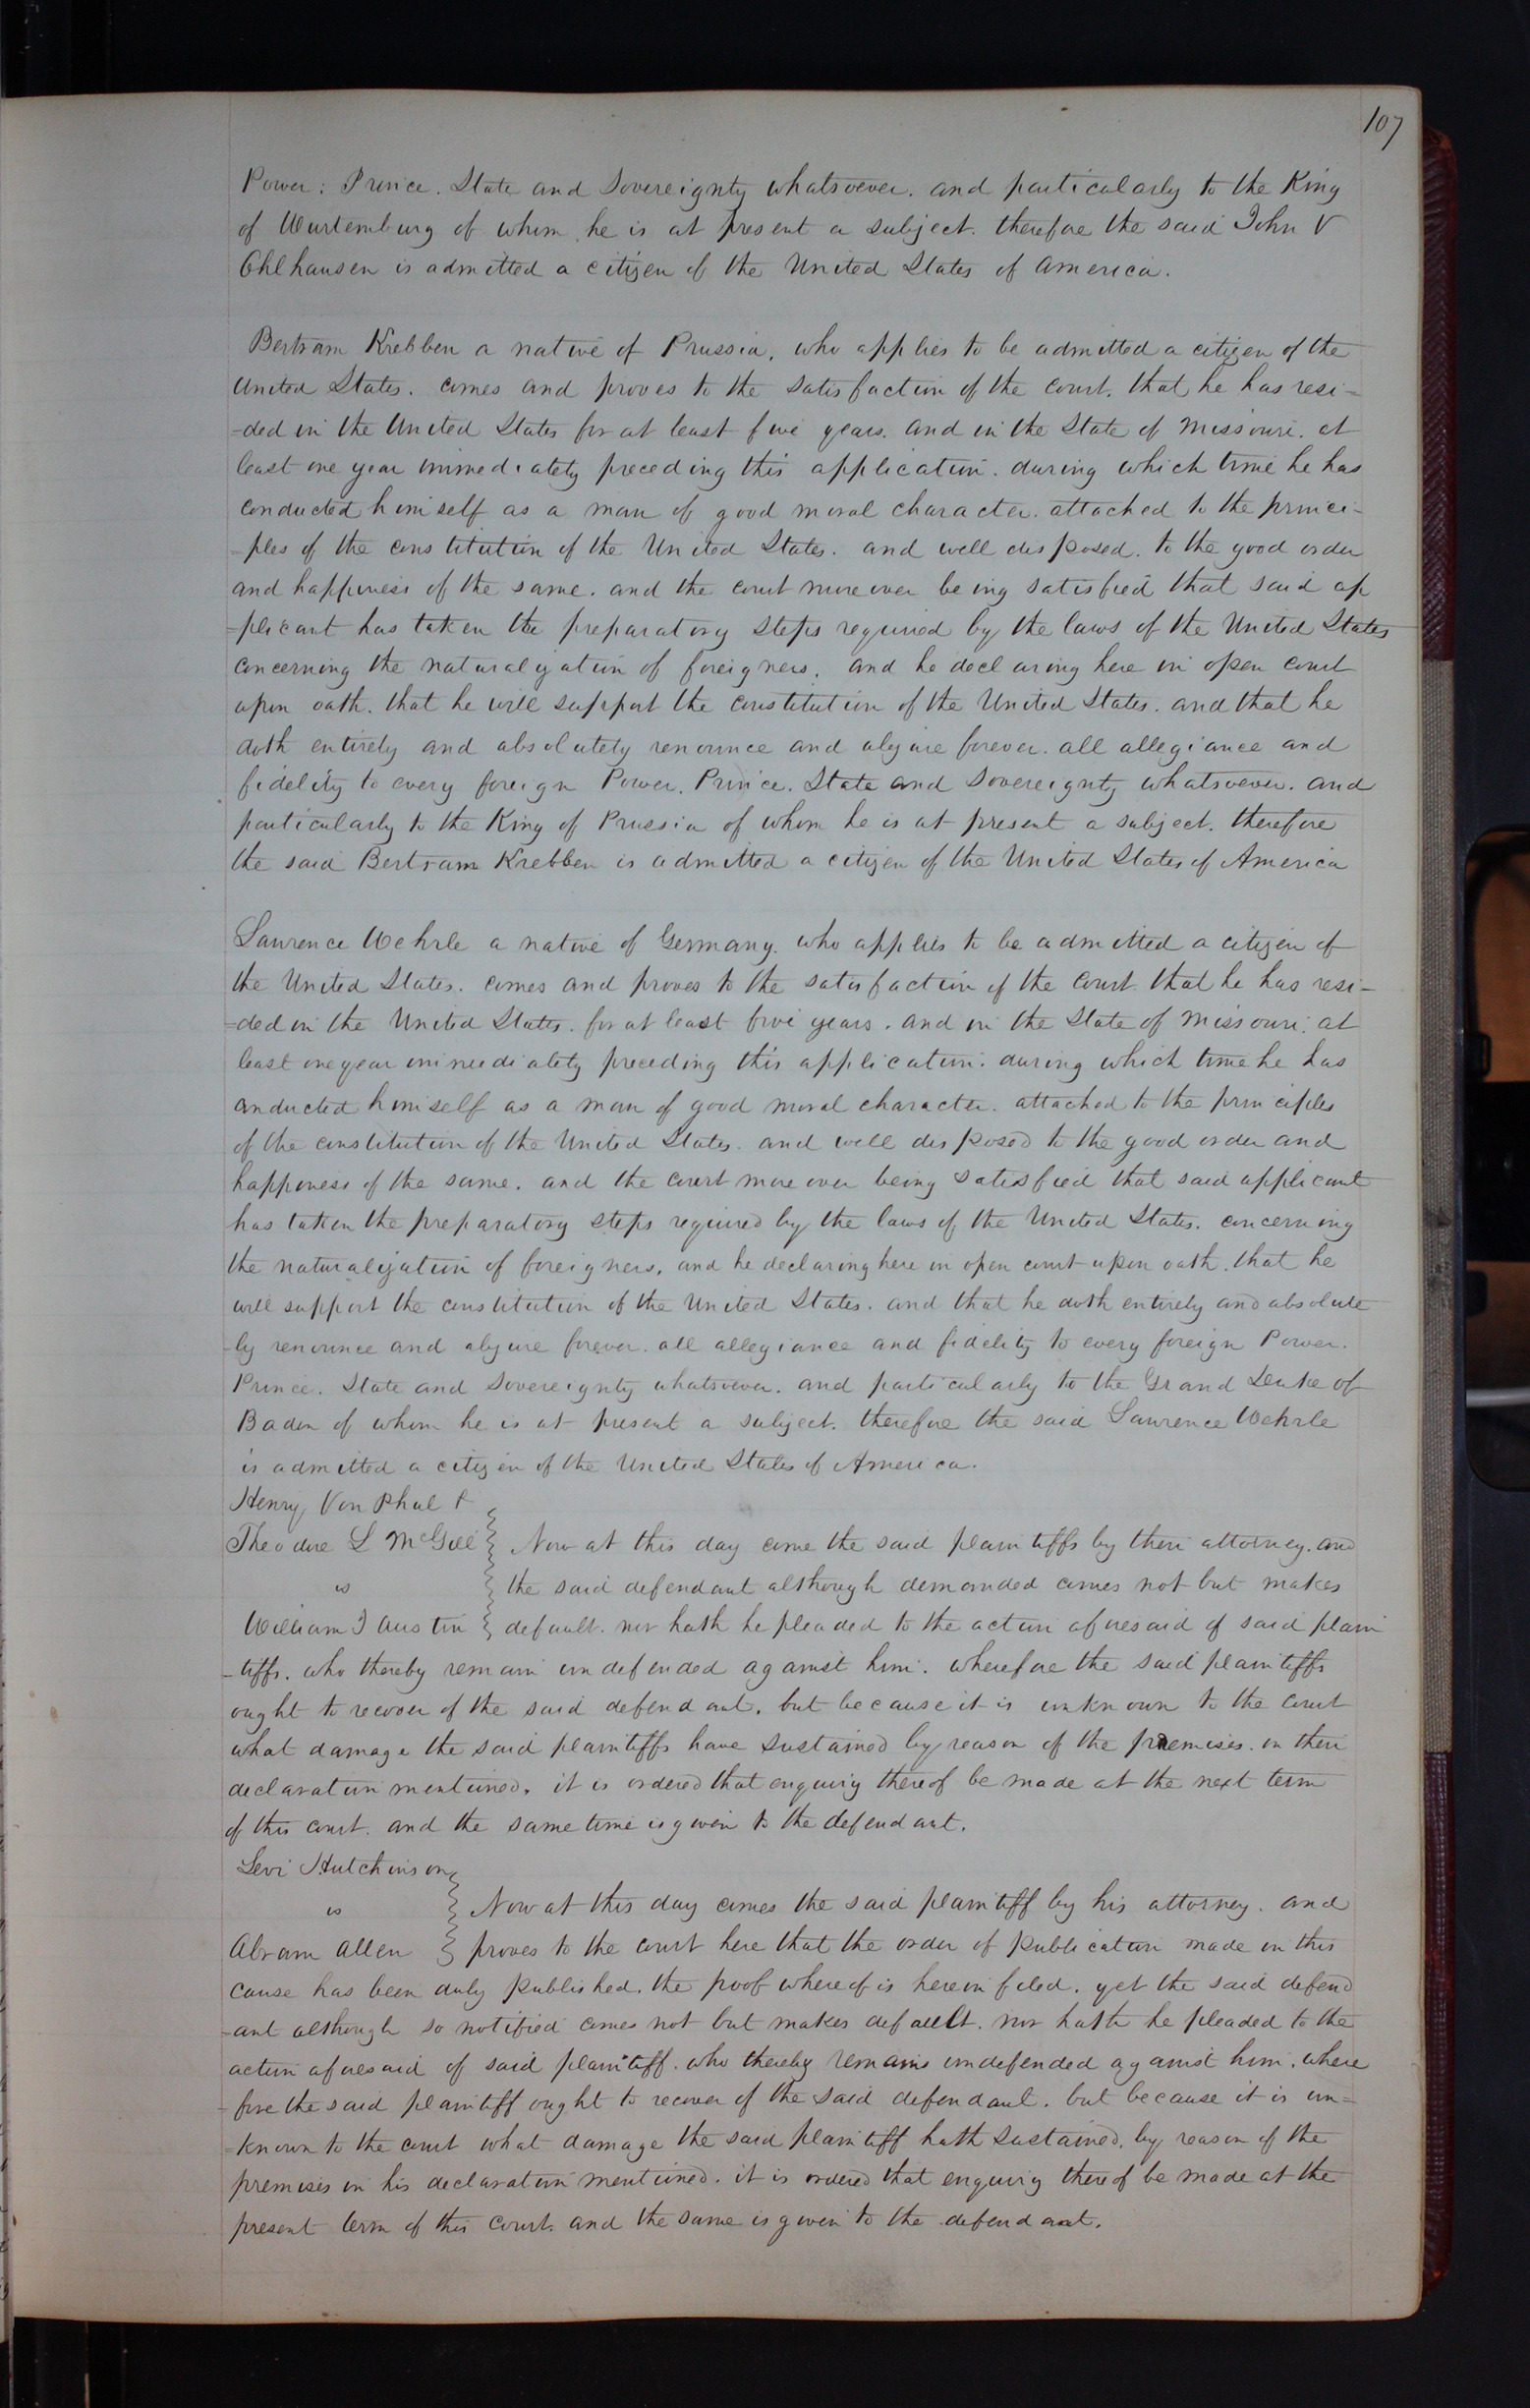 107
Power, Prince. State and Sovereignty whatsoever. and particularly to the King
of Wurtemburg of whom he is at present a subject. therefore the said John V
Ohlhausen is admitted a citizen of the United States of America.
Bertram Krebben a native of Prussia, who applies to be admitted a citizen of the
United States. comes and proves to the satisfaction of the court. that he has resi-
-ded in the United States for at least five years. and in the State of Missouri. at
least one year immediately preceding this application. during which time he has
conducted himself as a man of good moral character. attached to the princi-
-ples of the constitution of the United States. and well disposed. to the good order
and happiness of the same. and the court moreover being satisfied that said ap
-plicant has taken the preparatory steps required by the laws of the United States
concerning the naturalization of foreigners. and he declaring here in open court
upon oath. that he will support the constitution of the United States. and that he
doth entirely and absolutely renounce and abjure forever. all allegiance and
fidelity to every foreign Power. Prince. State and Sovereignty whatsoever. and
particularly to the King of Prussia of whom he is at present a subject. therefore
the said Bertram Krebben is admitted a citizen of the United States of America
Lawrence Wehrle a native of Germany. who applies to be admitted a citizen of
the United States. comes and proves to the satisfaction of the court that he has resi-
-ded in the United States. for at least five years. and in the State of Missouri. at
least one year immediately preceding this application. during which time he has
conducted himself as a man of good moral character. attached to the principles
of the constitution of the United States. and well disposed to the good order and
happiness of the same. and the court moreover being satisfied that said applicant
has taken the preparatory steps required by the laws of the United States. concerning
the naturalization of foreigners. and he declaring here in open court upon oath. that he
will support the constitution of the United States. and that he doth entirely and absolute
-ly renounce and abjure forever. all allegiance and fidelity to every foreign Power.
Prince. State and Sovereignty whatsoever. and particularly to the Grand Deuke of
Baden of whom he is at present a subject. therefore the said Lawrence Wehrle
is admitted a citizen of the United States of America.
Henry Von Phul &
Theodore L McGill } Now at this day come the said plaintiffs by their attorney. and
vs } the said defendant although demanded comes not but makes
William J Austin } default. nor hath he pleaded to the action aforesaid of said plain
-tiffs. who thereby remain undefended against him. wherefore the said plaintiffs
ought to recover of the said defendant. but because it is unknown to the court
what damage the said plaintiffs have sustained by reason of the premises. in their
declaration mentioned. it is ordered that enquiry thereof be made at the next term
of this court. and the same time is given to the defendant.
Levi Hutchinson
vs } Now at this day comes the said plaintiff by his attorney. and
Abram Allen } proves to the court here that the order of publication made in this
cause has been duly published. the proof whereof is herein filed. yet the said defend
-ant although so notified comes not but makes default. nor hath he pleaded to the
action aforesaid of said plaintiff. who thereby remains undefended against him. where
-fore the said plaintiff ought to recover of the said defendant. but because it is un-
-known to the court what damage the said plaintiff hath sustained. by reason of the
premises in his declaration mentioned. it is ordered that enquiry thereof be made at the
present term of this court. and the same is given to the defendant.